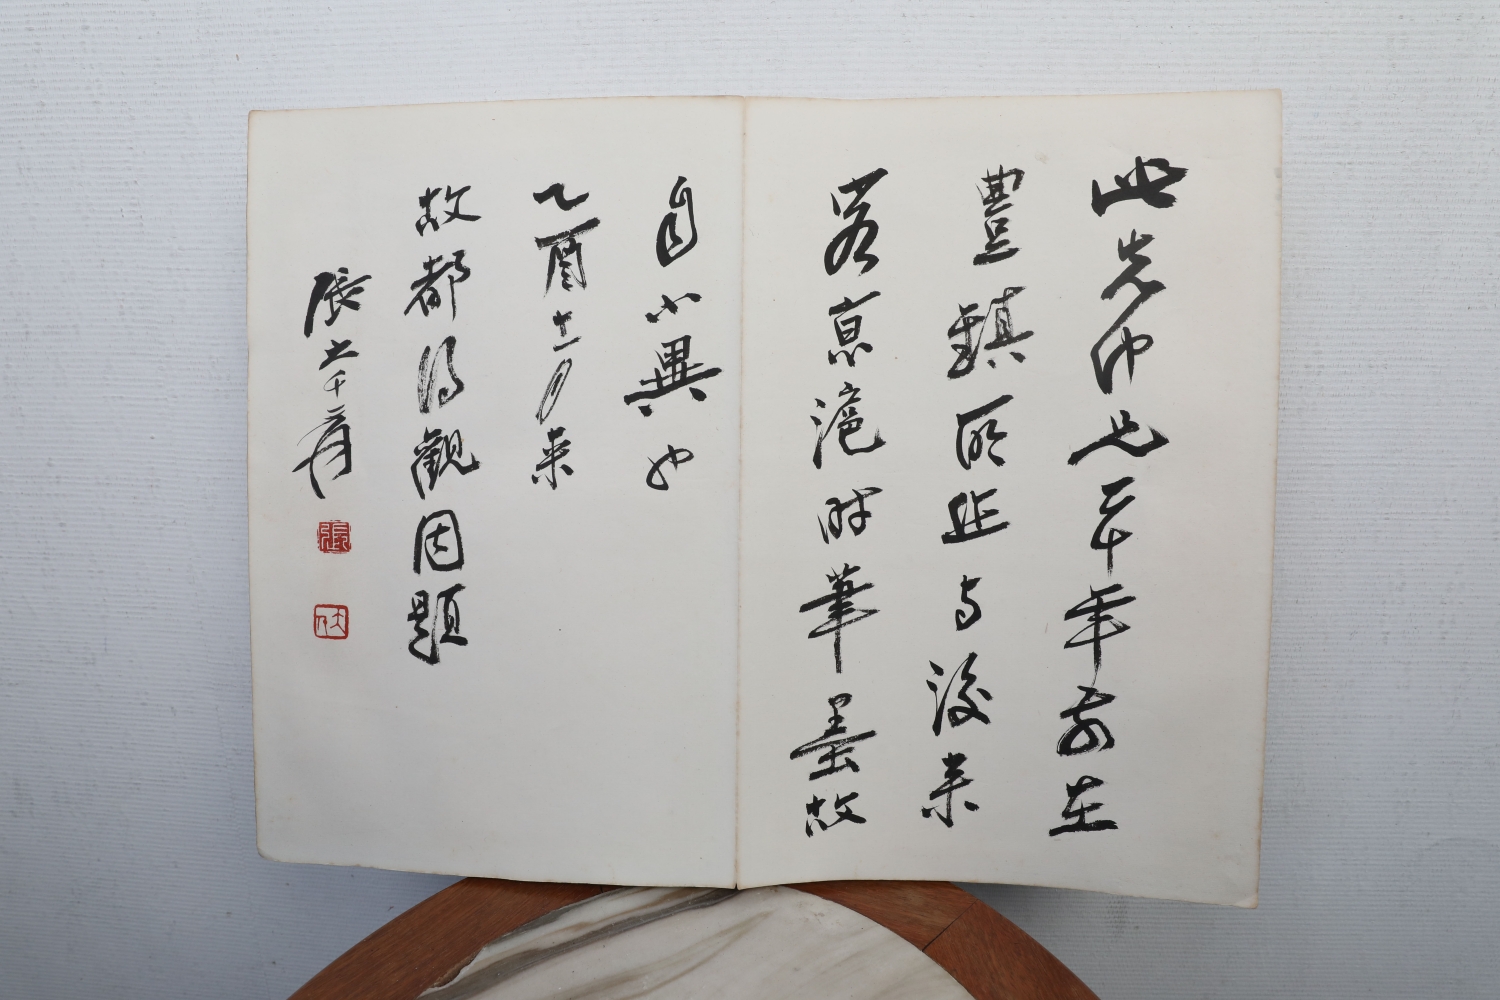 此先仲兄二十年前在
豐鎮所作与後来
客京滬時筆墨故
自小異也
乙酉十一月来
故都得觀因題
張大千爰
張
大千